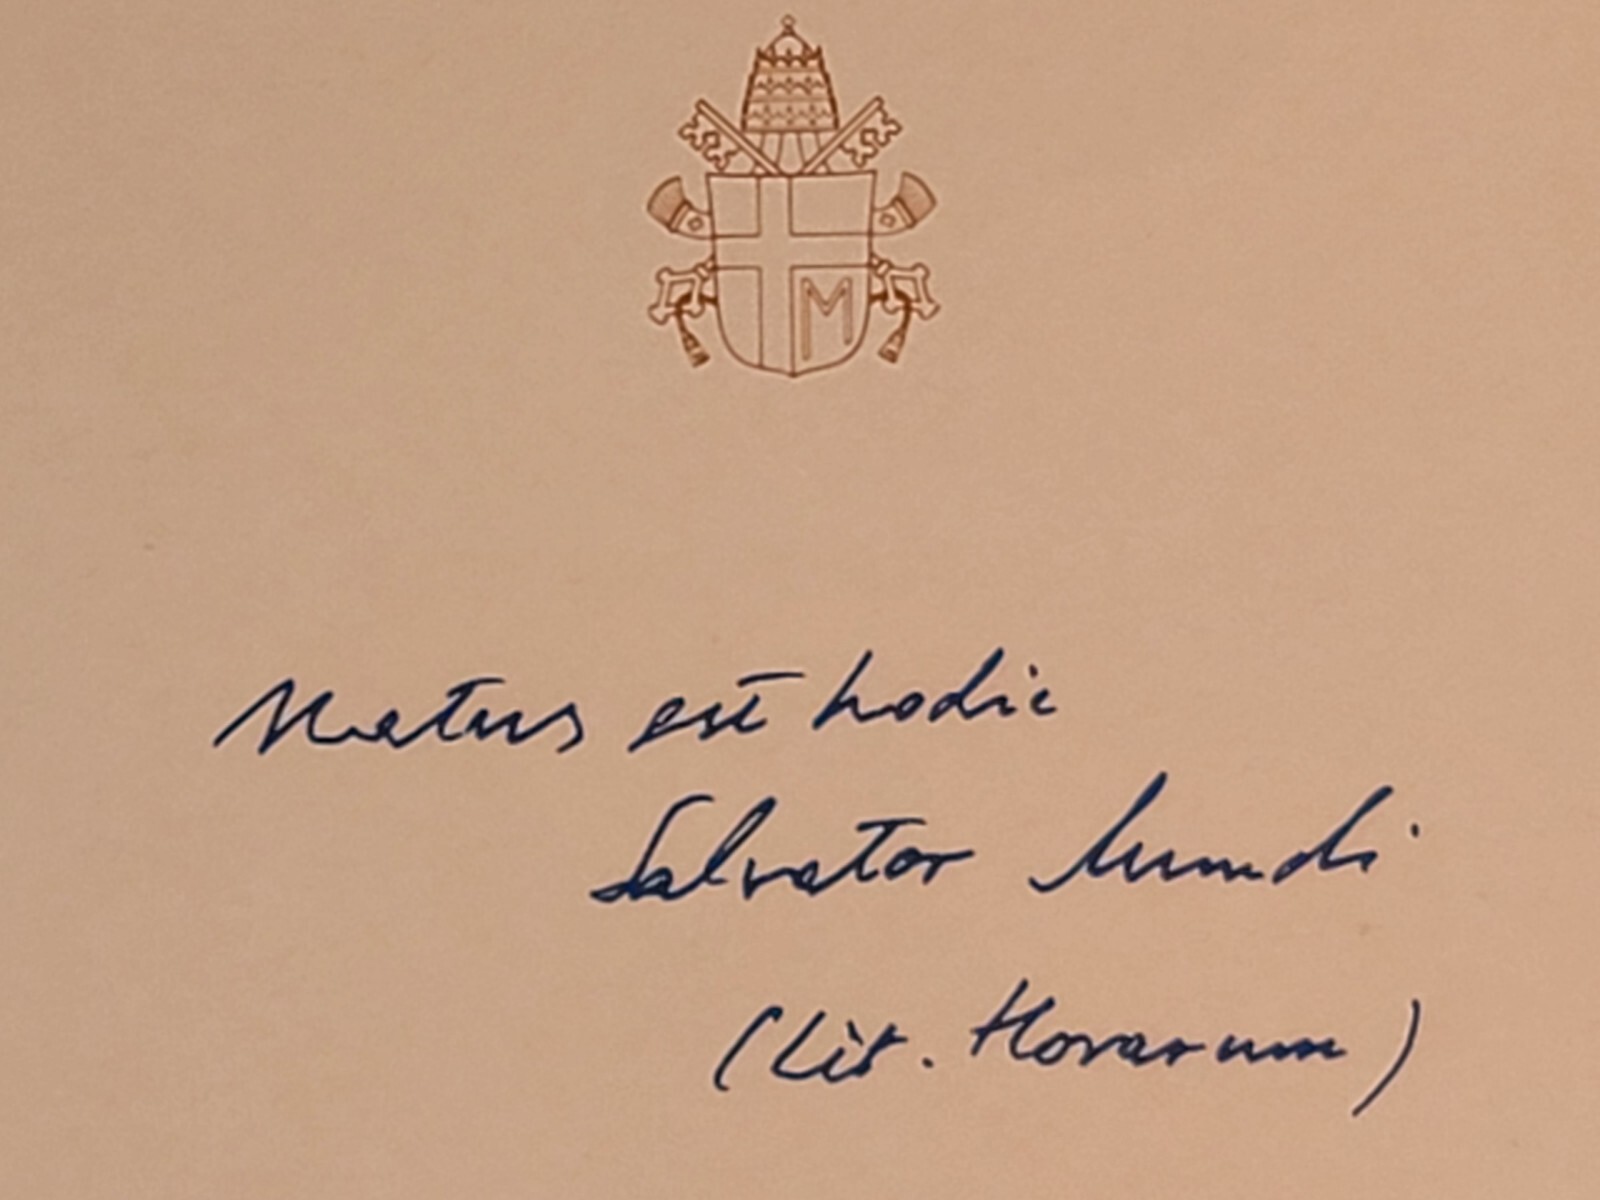 M
Natus est hodie
Salvator Mundi
(Lit. Horarum)